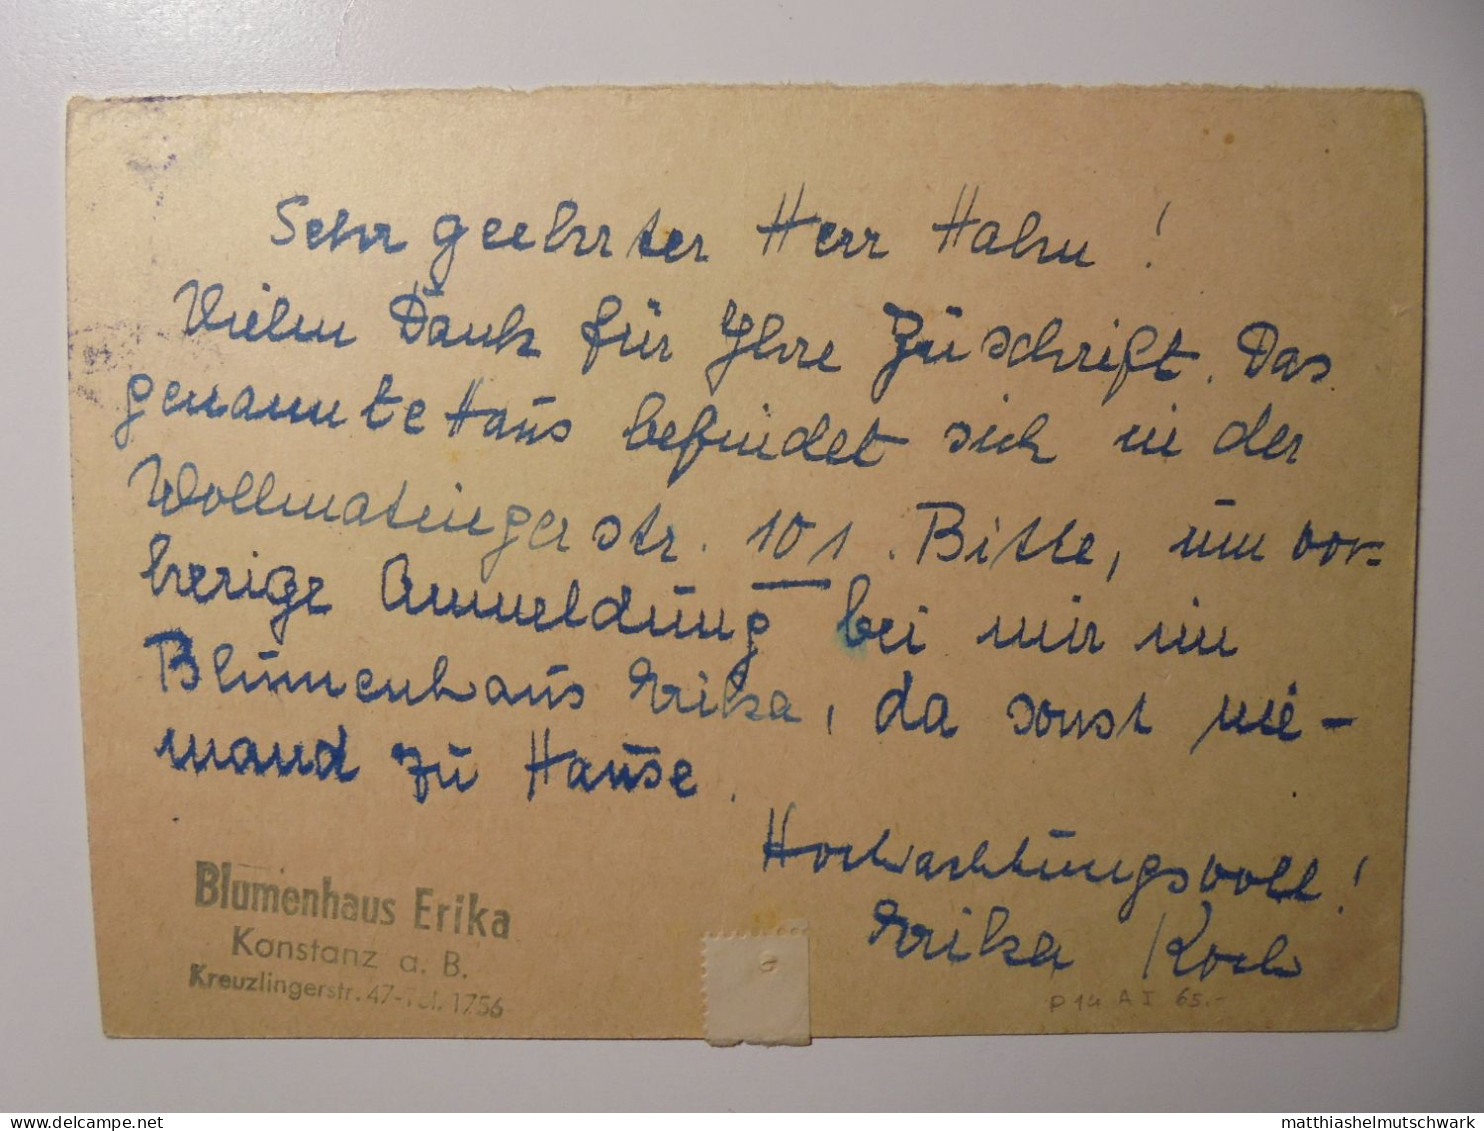 Sehr geehrter Herr Hahn!
Vielen Dank für Ihre Zuschrift. Das
genannte Haus befindet sich in der
Wollmatingerstr. 101. Bitte, um vor-
herige Anmeldung bei mir im
Blumenhaus Erika, da sonst nie-
mand zu Hause.
Hochachtungsvoll!
Erika Koch
Blumenhaus Erika
Konstanz a. B.
Kreuzlingerstr. 47-Tel. 1756
P 14 A I 65.-
delcampe.net
matthiashelmutschwark